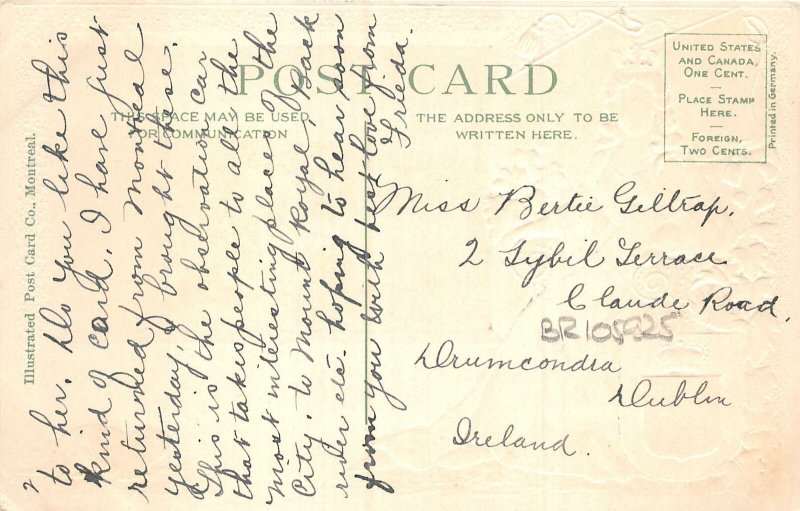 POST CARD
THIS SPACE MAY BE USED
FOR COMMUNICATION
THE ADDRESS ONLY TO BE
WRITTEN HERE.
UNITED STATES
AND CANADA,
ONE CENT.
PLACE STAMP
HERE.
FOREIGN,
TWO CENTS.
Printed in Germany.
Illustrated Post Card Co., Montreal.
2
to her. Do you like this
kind of card. I have just
returned from Montreal
yesterday, I brought these.
This is the observation car
that takes people to all the
most interesting places in the
City. to Mount Royal, Back
river etc. hoping to hear soon
from you with best love from
Frieda.
Miss Bertie Giltrap,
2 Sybil Terrace
Claude Road,
Drumcondra
Dublin
Ireland.
BR105925